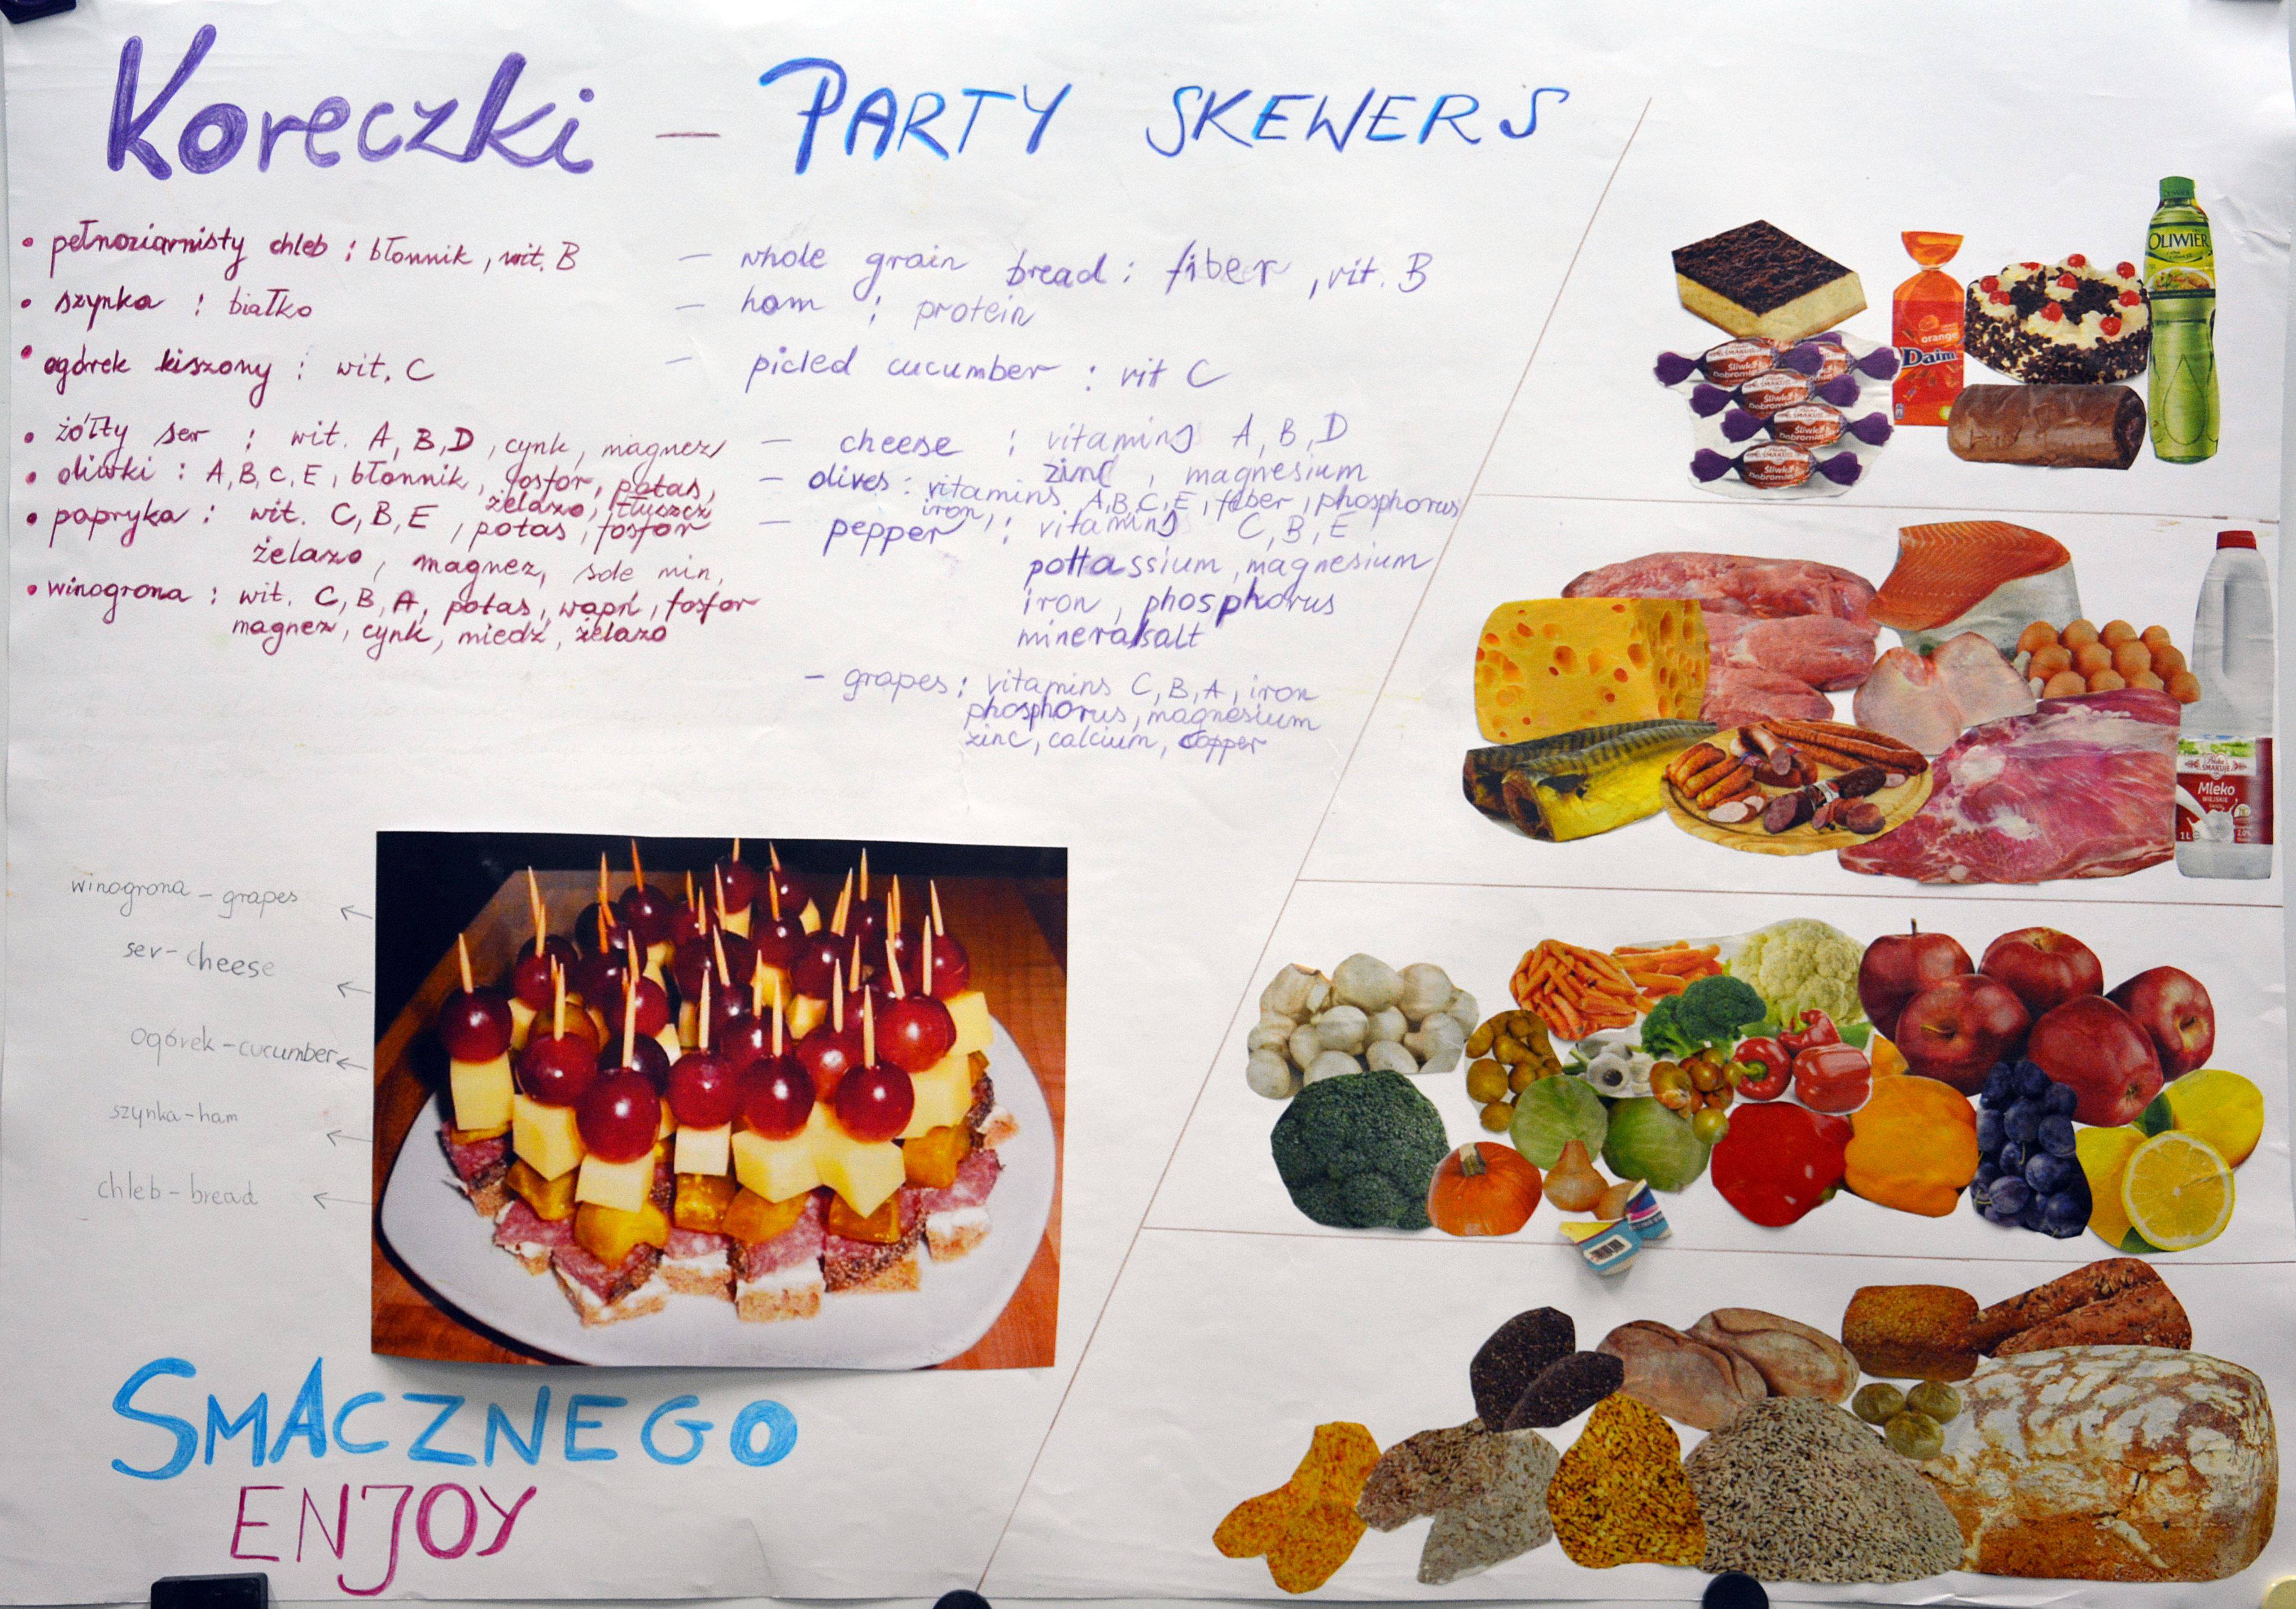 Koreczki — PARTY SKEWERS
• pełnoziarnisty chleb : błonnik, wit. B
• szynka : białko
• ogórek kiszony : wit. C
• żółty ser : wit. A, B, D, cynk, magnez
• oliwki : A, B, C, E, błonnik, fosfor, potas,
żelazo, tłuszcz
• papryka : wit. C, B, E, potas, fosfor
żelazo, magnez, sole min.
• winogrona : wit. C, B, A, potas, wapń, fosfor
magnez, cynk, miedź, żelazo
— whole grain bread : fiber, vit. B
— ham : protein
— picled cucumber : vit C
— cheese : vitamins A, B, D
zinc, magnesium
— olives : vitamins A, B, C, E, fiber, phosphorus
iron,
— pepper : vitamins C, B, E
pottassium, magnesium
iron, phosphorus
mineral salt
— grapes : vitamins C, B, A, iron
phosphorus, magnesium
zinc, calcium, copper
winogrona – grapes
ser – cheese
ogórek – cucumber
szynka – ham
chleb – bread
SMACZNEGO
ENJOY
OLIWIER
orange
Daim
Śliwka
Śliwka
Śliwka
Śliwka
Śliwka
Mleko
WIEJSKIE
1L